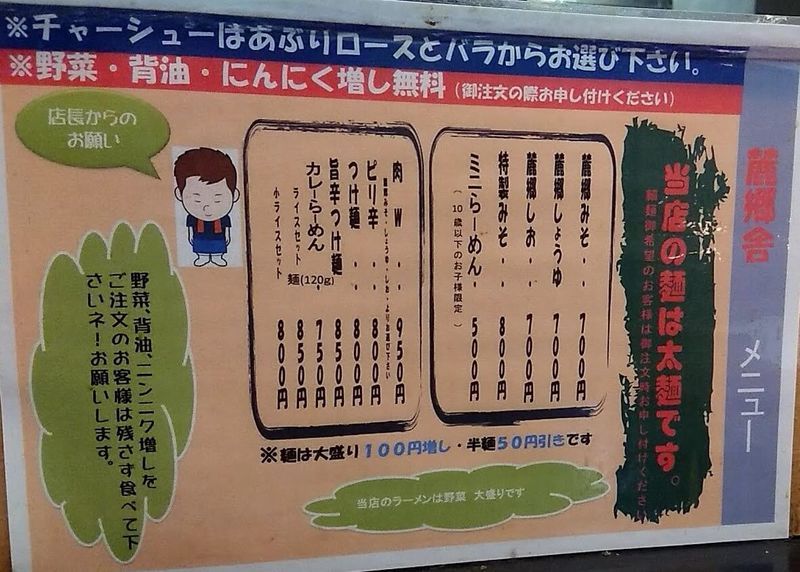 ※チャーシューはあぶりロースとバラからお選び下さい。
※野菜・背油・にんにく増し無料(御注文の際お申し付けください)
麓郷舎 メニュー
当店の麺は太麺です。
細麺御希望のお客様は御注文時お申し付けください
麓郷みそ・・700円
麓郷しょうゆ 700円
麓郷しお・・700円
特製みそ・・800円
ミニらーめん・500円
(10歳以下のお子様限定)
肉W・・950円
ピリ辛・・800円
つけ麺・・800円
旨辛つけ麺 850円
カレーらーめん・750円
ライスセット 麺(120g) 850円
小ライスセット 800円
※麺は大盛り100円増し・半麺50円引きです
当店のラーメンは野菜 大盛りです
店長からの
お願い
野菜、背油、ニンニク増しを
ご注文のお客様は残さず食べて下
さいネ!お願いします。